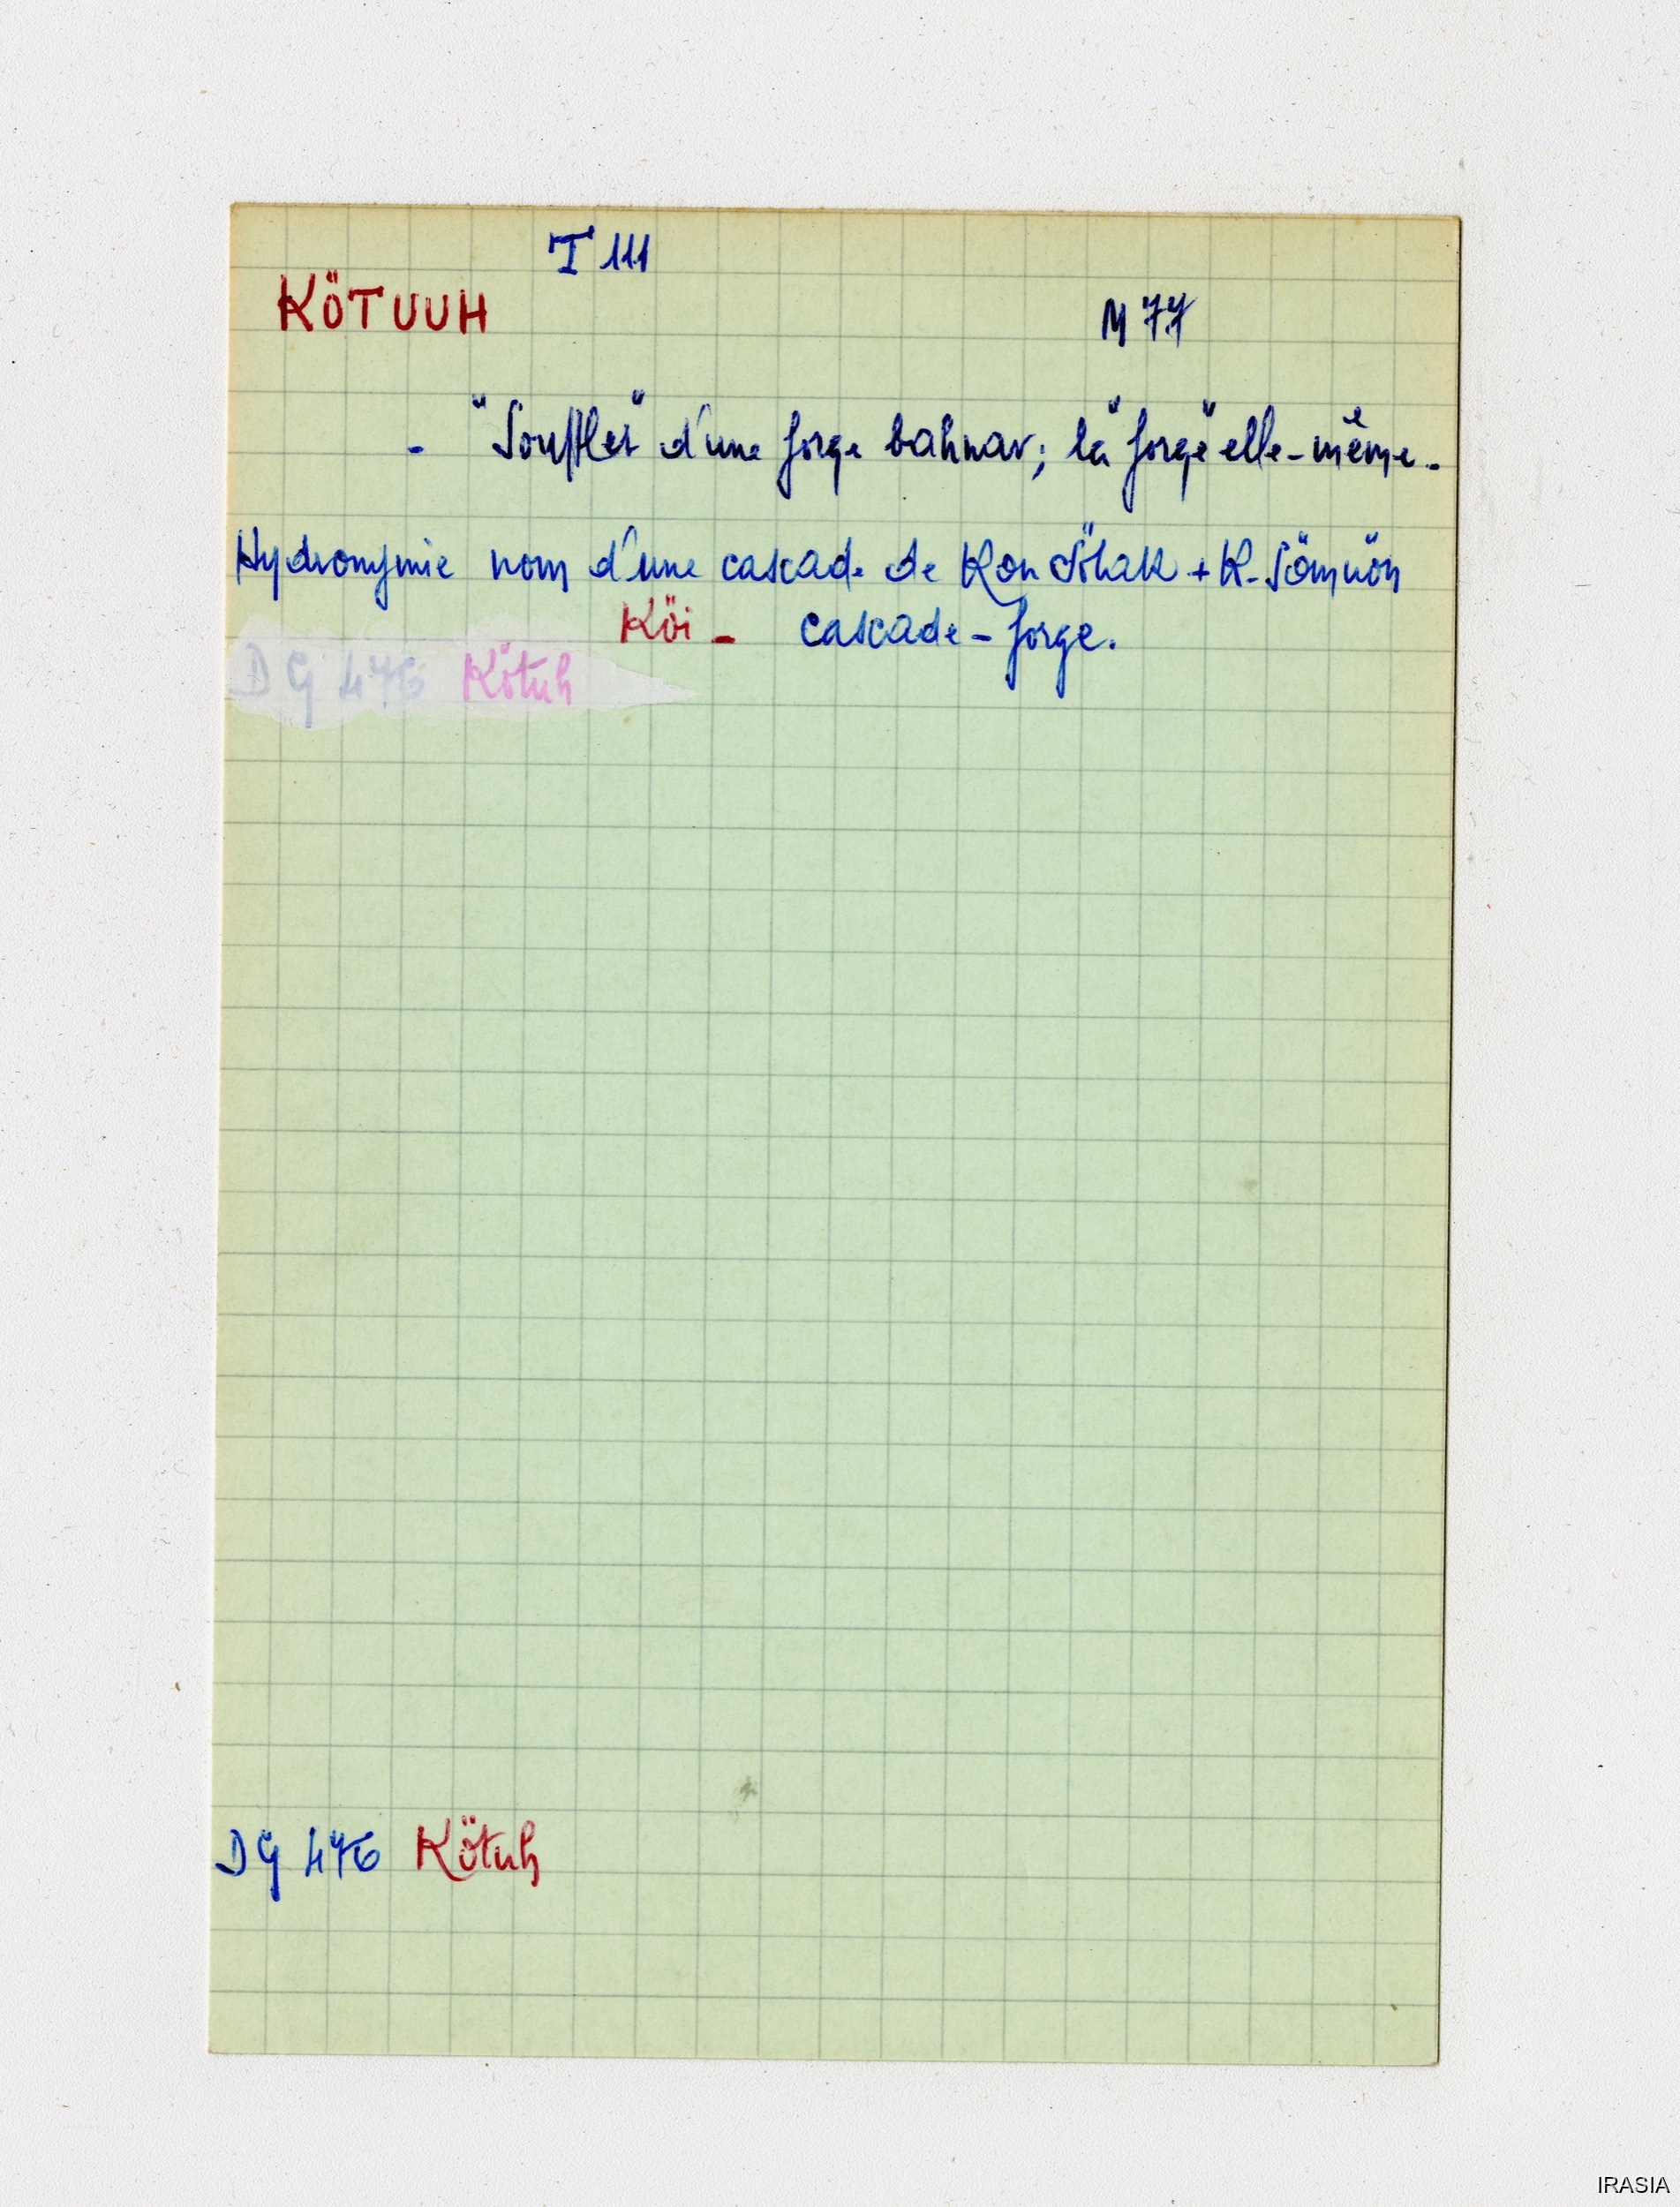 T 111
KÖTUUH
M 77
- "Soufflet" d'une forge bahnar; la "forge" elle-même.
Hydronymie nom d'une cascade de Kon Sölak + K. Sömuön
Köi - cascade-forge.
DG 476 Kötuh
DG 476 Kötuh
IRASIA